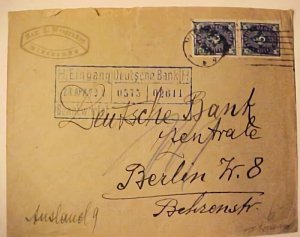 H. Eingang Deutsche Bank H
0575 02611
Deutsche Bank
Zentrale
Berlin W. 8
Behrenstr.
Ausland 9